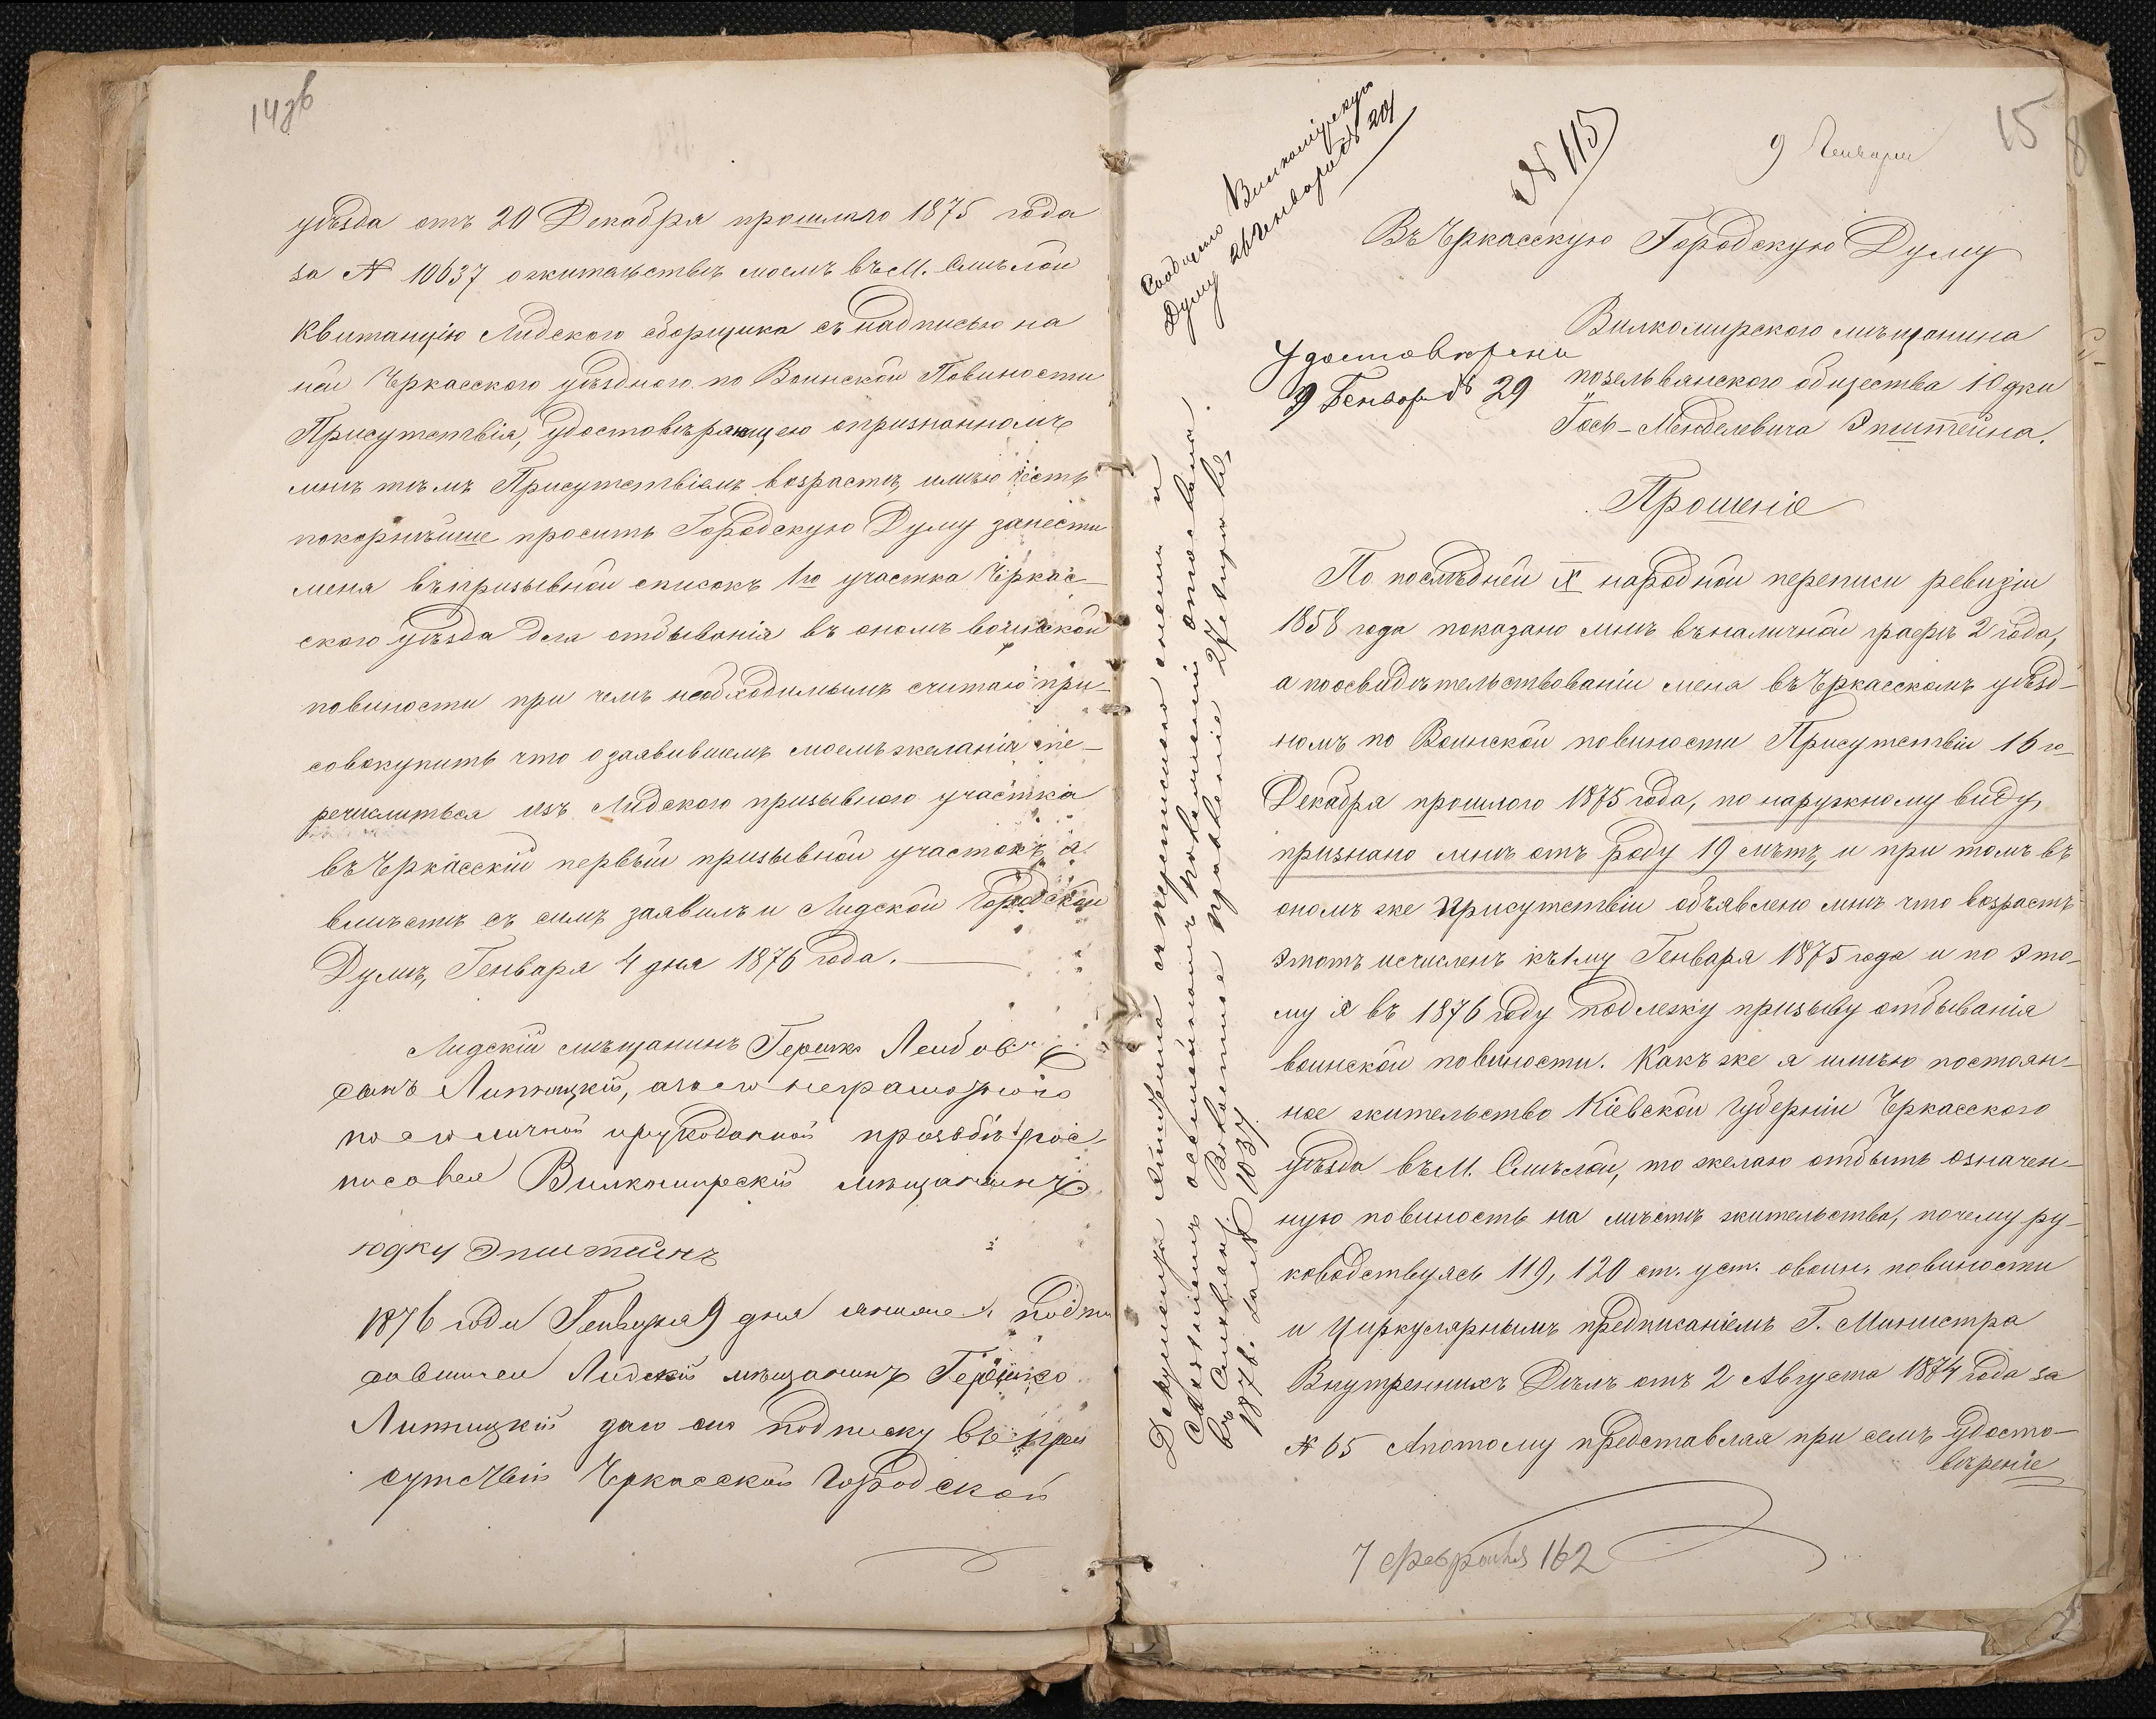 14 зв
уѣзда отъ 20 Декабря прошлаго 1875 года
за № 10637 о жительствѣ моемъ въ М. Смѣлой
Квитанцію Лидского сборщика съ надписью на
ней Черкасского уѣздного по Воинской Повиности
Присутствія, удостовѣряющею о признанномъ
мнѣ тѣмъ Присутствіемъ возрастѣ, имѣю честь
покорнѣйше просить Городскую Думу занести
меня въ призывной списокъ 1го участка Черкас-
ского уѣзда для отбыванія въ ономъ воинской
повиности при чемъ необходимымъ считаю при-
совокупить что о заявившемъ моемъ желаніи пе-
речислиться изъ Лидского призывного участка
въ Черкасскій первый призывной участокъ я
вмѣстѣ съ симъ заявилъ и Лидской Городской
Думѣ, Генваря 4 дня 1876 года.
Лидскій мѣщанинъ Гершко Лейбов
сынъ Липницкій, а за его неграмотного
по его личной и рукоданной прозьбѣ рос-
писовся Вилкомирскій мѣщанинъ
юдку Эпштейнъ
1876 года Генваря 9 дня я ниже подпи
савшися Лидскій мѣщанинъ Гершко
Липницкій даю сию подписку въ при
сутствіи Черкасской Городской
15
9 Генваря
№ 115
Сообщено Вилкомірскую
Думу 26 Генваря № 204
Въ Черкасскую Городскую Думу
Вилкомирского мѣщанина
позельвянского общества Юдки
Гось-Менделевича Эпштейна.
Удостоверени
9 Генвар № 29
Прошеніе
По послѣдней X народной переписи ревизіи
1858 года показано мнѣ въ наличной графѣ 2 года,
а по освидѣтельствованіи меня въ Черкасскомъ уѣзд-
номъ по Воинской повиности Присутствіи 16го
Декабря прошлого 1875 года, по наружному виду,
признано мнѣ отъ роду 19 лѣтъ, и при томъ въ
ономъ же Присутствіи объявлено мнѣ что возрастъ
этотъ исчисленъ къ 1му Генваря 1875 года и по Это-
му я въ 1876 году подлежу призыву отбыванія
воинской повиности. Какъ же я имѣю постоян-
ное жительство Кіевской Губерніи Черкасского
уѣзда въ М. Смѣлой, то желаю отбыть означен-
ную повиность на мѣстѣ жительства, почему ру-
ководствуясь 119, 120 ст. уст. о воин. повиности
и Циркулярнымъ предписаніемъ Г. Министра
Внутреннихъ Дѣлъ отъ 2 Августа 1874 года за
№ 65 А потому представляя при семъ удосто-
вѣреніе
7 февраля 162
1876. за № 1037.